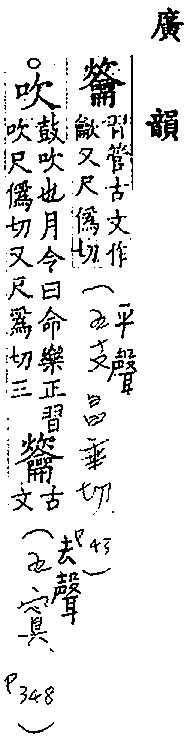 廣韻
龡 習管古文作
又尺僞切
(平聲
五支 昌垂切
P43)
。吹 鼓吹也月令曰命樂正習
吹尺僞切又尺爲切三
龡 古
文
(去聲
五寘
P348)